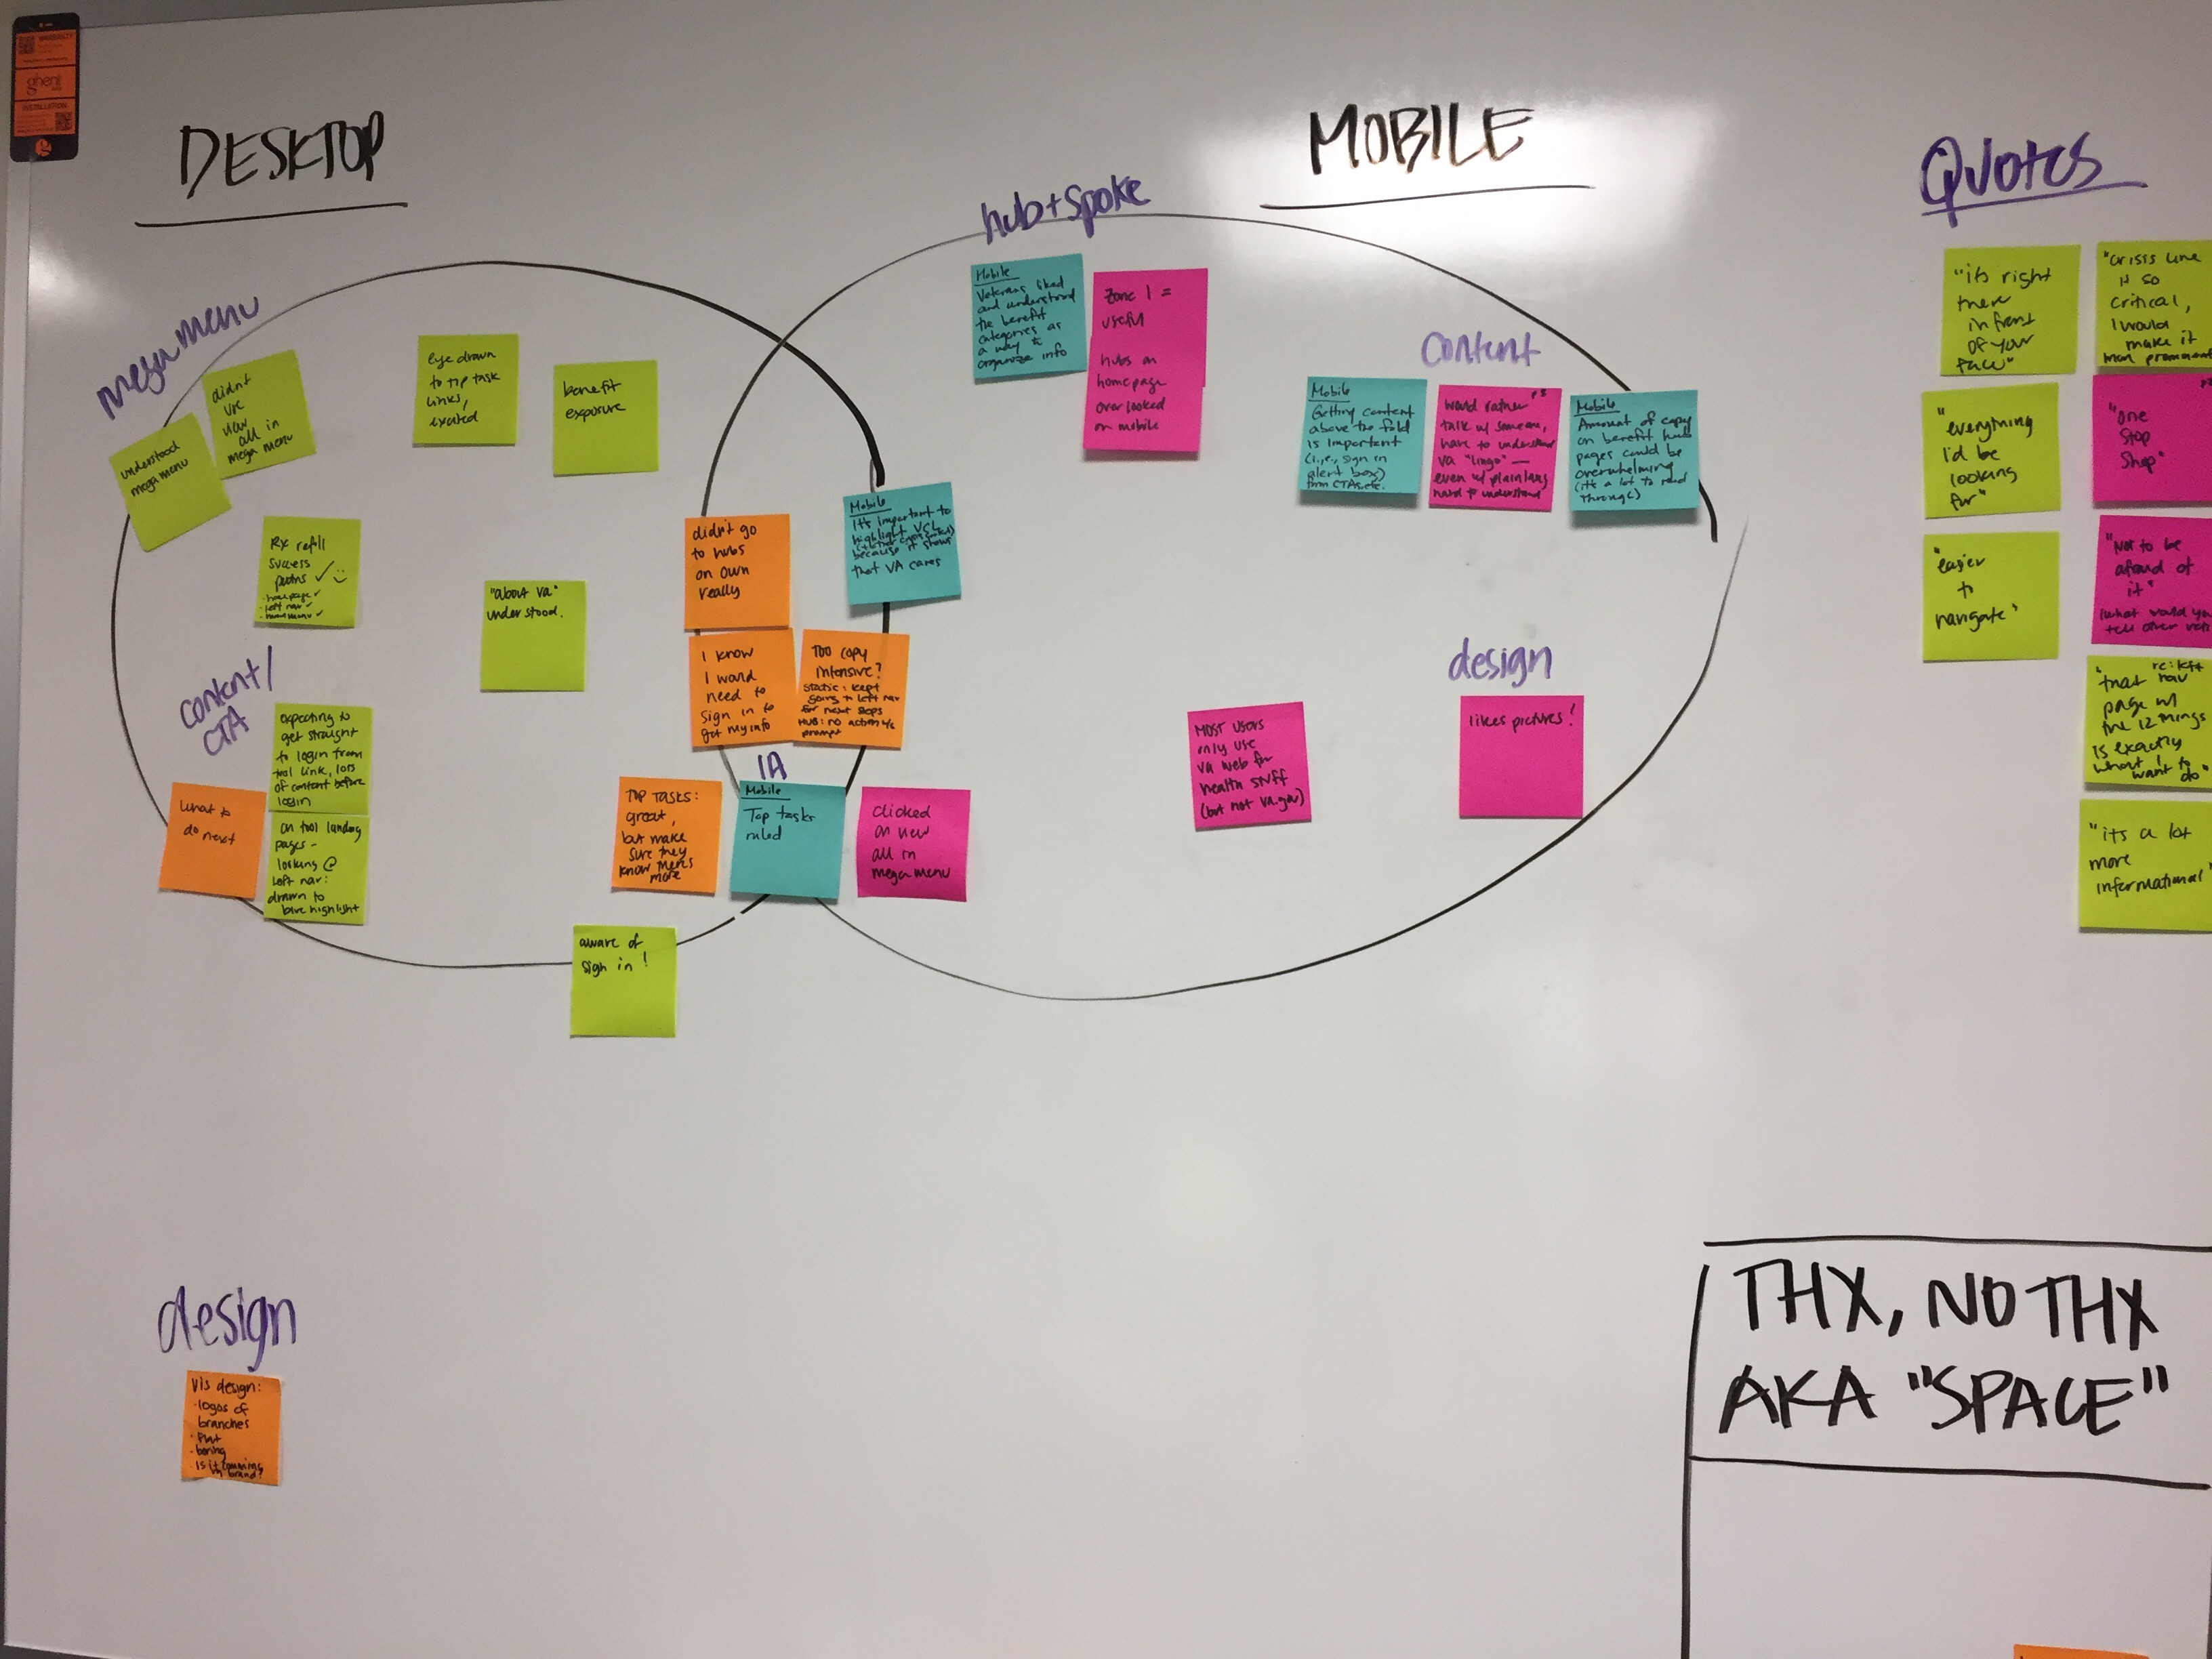 DESKTOP
mega menu
understood
mega menu
didn't
use
view
all in
mega menu
eye drawn
to top task
links,
excited
benefit
exposure
Rx refill
success
paths ✓
- homepage ✓
- left nav ✓
"about va"
understood.
content/
CTA
expecting to
get straight
to login from
tool link, lots
of content before
login
what to
do next
on tool landing
pages -
looking @
left nav:
drawn to
blue highlight
aware of
sign in!
didn't go
to hubs
on own
really
Mobile
It's important to
highlight VCL
because it shows
that VA cares
I know
I would
need to
sign in to
get my info
Too copy
intensive?
static: kept
going to left nav
for next steps
HUB: no action
prompt
IA
TOP TASKS:
great,
but make
sure they
know there's
more
Mobile
Top tasks
ruled
clicked
on view
all in
mega menu
MOBILE
hub+spoke
Mobile
Veterans liked
and understood
the benefit
categories as
a way to
organize info
Zone 1 =
useful
hubs on
homepage
overlooked
on mobile
content
Mobile
Getting content
above the fold
is important
(i.e., sign in
alert box)
from CTAs, etc.
would rather
talk w/ someone,
have to understand
va "lingo" —
even w/ plain lang
hard to understand
Mobile
Amount of copy
on benefit hub
pages could be
overwhelming
(it's a lot to read
through)
design
MOST USERS
only use
va web for
health stuff
(but not va.gov)
likes pictures!
QUOTES
"its right
there
in front
of your
face"
"crisis line
is so
critical,
I would
make it
more prominent
"everything
I'd be
looking
for"
"one
stop
shop"
"easier
to
navigate"
"Not to be
afraid of
it"
(what would you
tell other
re: left
nav
"that
page w/
the 12 things
is exactly
what I
want to
do"
"its a lot
more
informational"
design
Vis design:
- logos of
branches
- flat
- boring
THX, NO THX
AKA "SPACE"